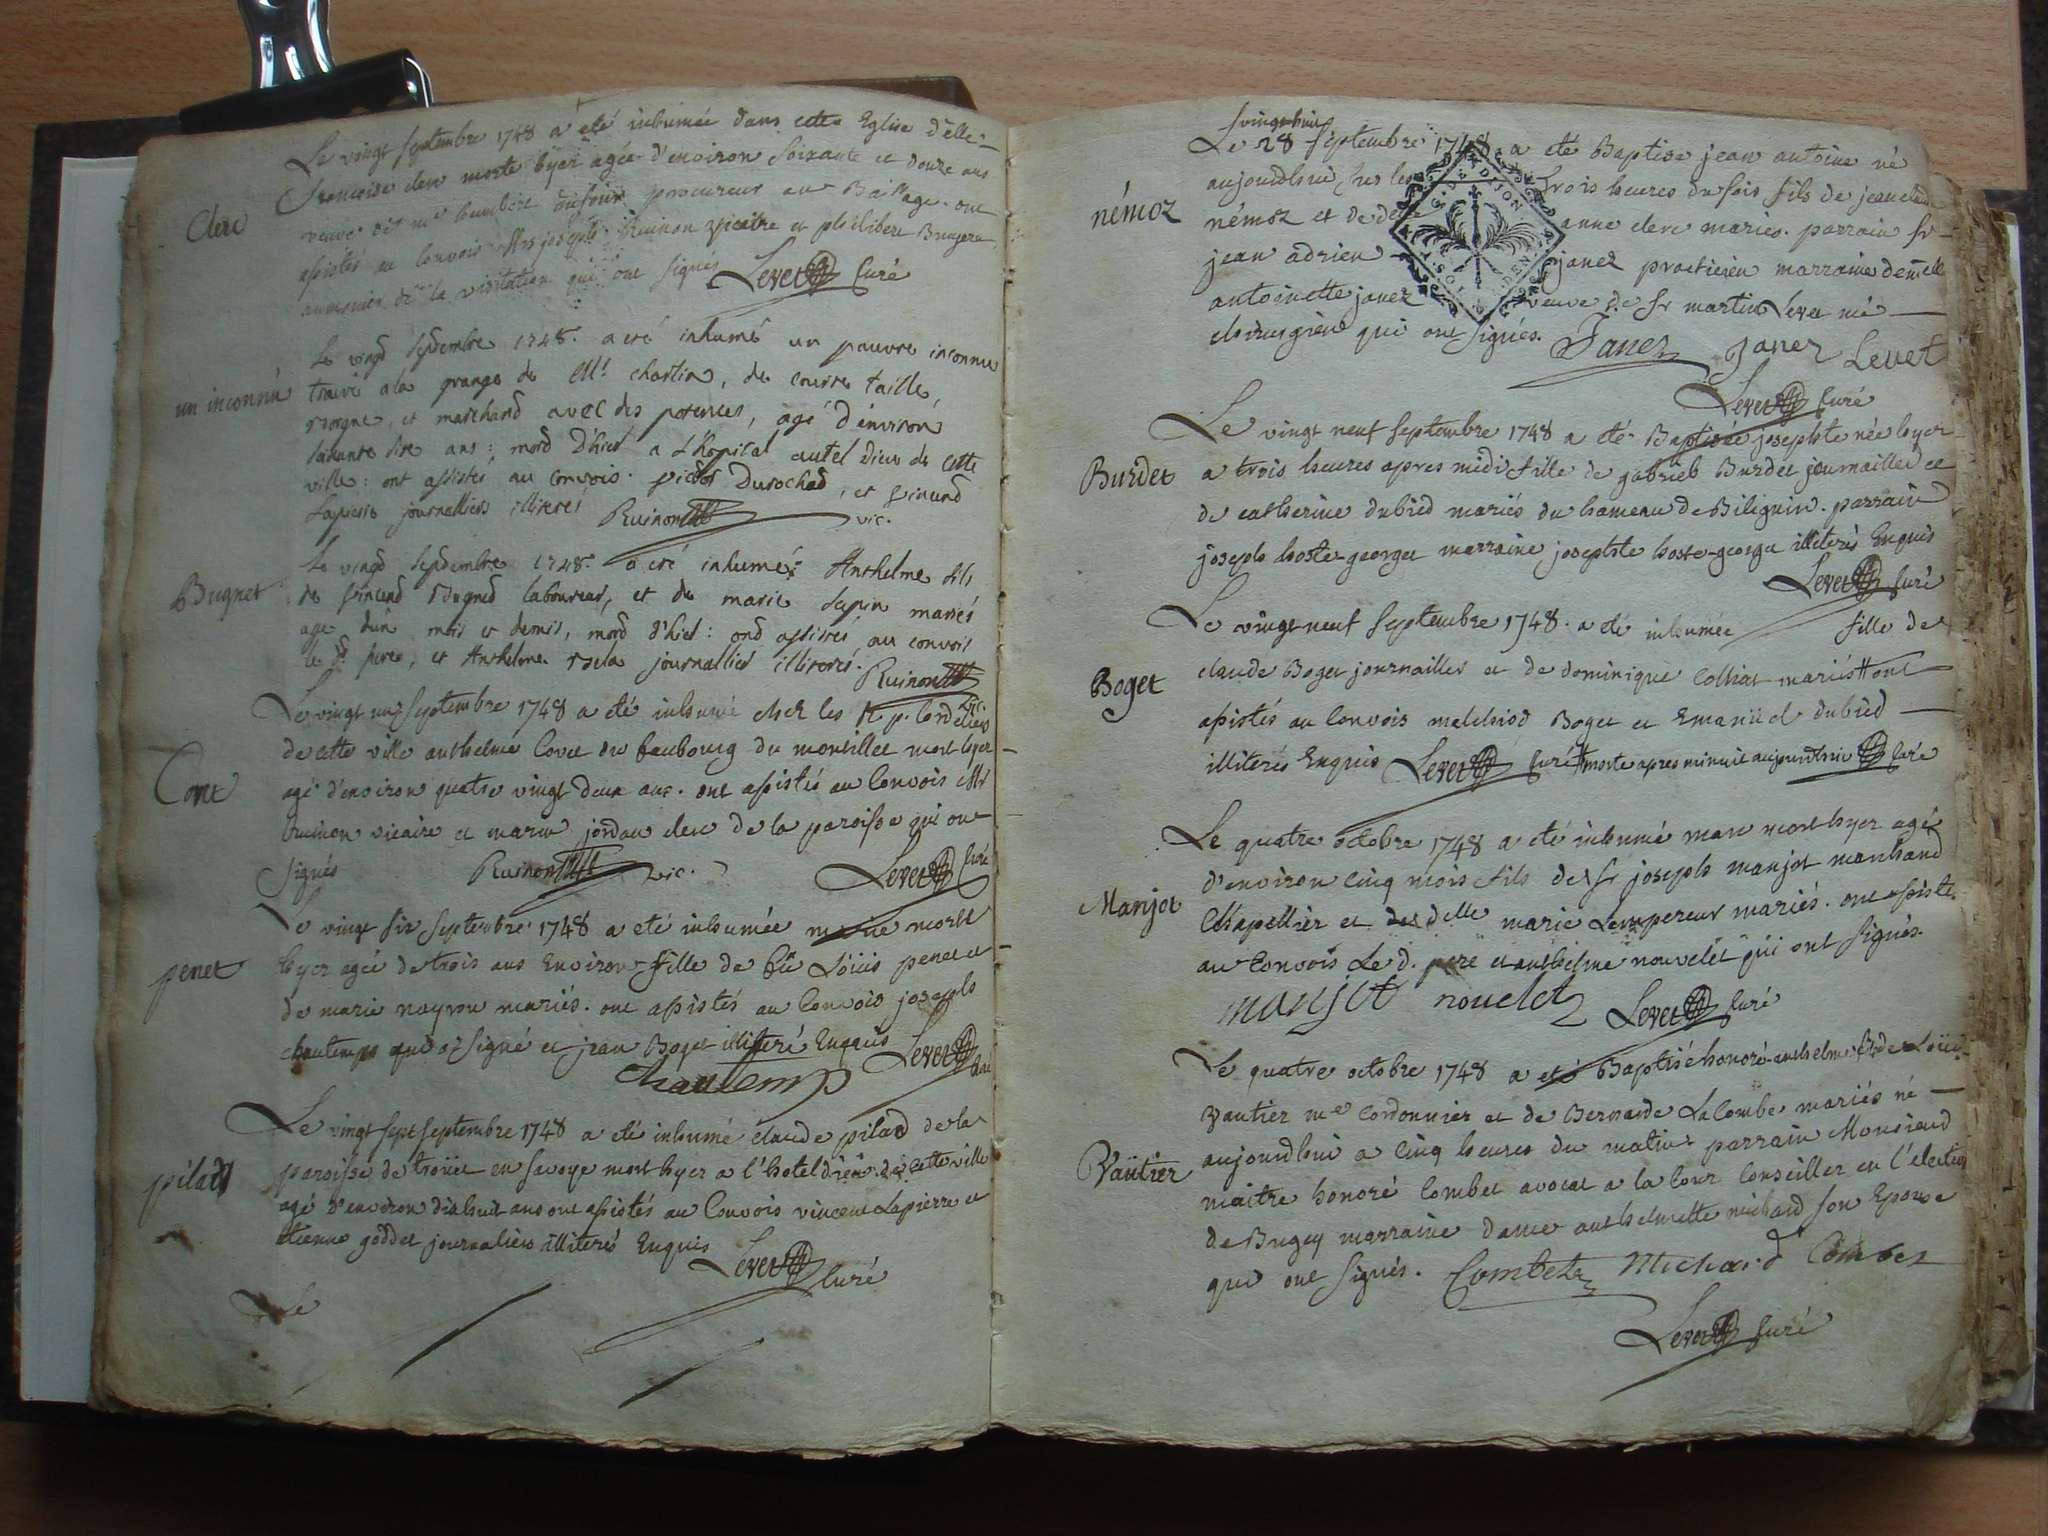 Le vingt septembre 1748 a été inhumée dans cette Eglise d'elle
Clerc
francoise clerc morte hyer agée d'environ soixante et douze ans
veuve de mr humbert dufour procureur au Bailliage. ont
assistés au convois Mrs joseph Ruinon vicaire et philibert Bruyere
aumonier de la visitation qui ont signés Levet Curé
Le vingt septembre 1748. a été inhumé un pauvre inconnu
un inconnu
trouvé a la grange de Mr. chastin, de courte taille,
borgne, et marchand avec des potences, agé d'environ
soixante dix ans: mord d'hier a l'hopital autel dieu de cette
ville: ont assistés au convois. victor Durochad, et vincend
Lapierre journalliers illiterés Ruinon vic.
Le vingd septembre 1748. a été inhumé Anthelme fils
Bugnet
de vincend Bugned laboureur, et de marie Lapin mariés
age d'un mois et demis, mord d'hier: ond assistés au convois
le d. pere, et Anthelme journallier illiterés. Ruinon vic.
Le vingt un septembre 1748 a été inhumé chez les R. p. Cordeliers
de cette ville anthelme Covet du faubourg du montillet mort hyer
agé d'environ quatre vingt deux ans. ont assistés au Convois Mr
Ruinon vicaire et marin jordan clerc de la paroisse qui ont
signés Ruinon vic. Levet Curé
Le vingt six septembre 1748 a été inhumée marie morte
penet
hyer agée de trois ans Environ fille de Loüis penet et
de marie nayron mariés. ont assistés au Convois joseph
chautemps qui a signé et jean Boget illiteré Enquis Levet Curé
Chautemp
Le vingt sept septembre 1748 a été inhumé claude pilad de la
pilad
paroisse de troüet en savoye mort hyer a l'hotel dieu de cette ville
agé d'environ dixhuit ans ont assistés au Convois vincent Lapierre et
etienne goddet journaliers illiterés Enquis Levet Curé
Le
vingt huit
Le 28 septembre 1748. a été Baptisé jean antoine né
némoz
aujourdhuy sur les trois heures du soir fils de jean claude
némoz et de delle anne clerc mariés. parrain sr
jean adrien janez practicien marraine demelle
antoinette janez veuve de sr martin Levet me
chirurgien qui ont signés. Janez Janez Levet
Levet Curé
Le vingt neuf septembre 1748 a été Baptisée josephte née hyer
Burdet
a trois heures apres midi fille de gabrieb Burdet journaillier et
de catherine dubied mariés du hameau de Bilignin. parrain
joseph hoste-george marraine josephte hoste-george illiterés Enquis
Levet Curé
Le vingt neuf septembre 1748. a été inhumée fille de
Boget
claude Boget journaillier et de dominique Colliat mariés ont
assistés au Convois melchiod Boget et Emanüel dubied
illiterés Enquis Levet Curé morte apres minuit aujourdhuy Curé
Le quatre octobre 1748 a été inhumé marc mort hyer agé
Manjot
d'environ cinq mois fils de sr joseph manjot marchand
Chapellier et de delle marie Lempereur mariés. ont assisté
au Convois Le d. pere et anthelme nouvelet qui ont signés.
manjot nouelet Levet Curé
Le quatre octobre 1748 a été Baptisé honoré-anthelme fils de Loüis
Vaütier
Vautier me Cordonnier et de Bernarde LaCombe mariés né
aujourdhui a cinq heures du matin parrain Monsieud
maitre honoré Combet avocat a la Cour Conseiller en l'election
de Bugey marraine dame anthelmette michard son Epouse
qui ont signés. Combet Michard Combet
Levet Curé